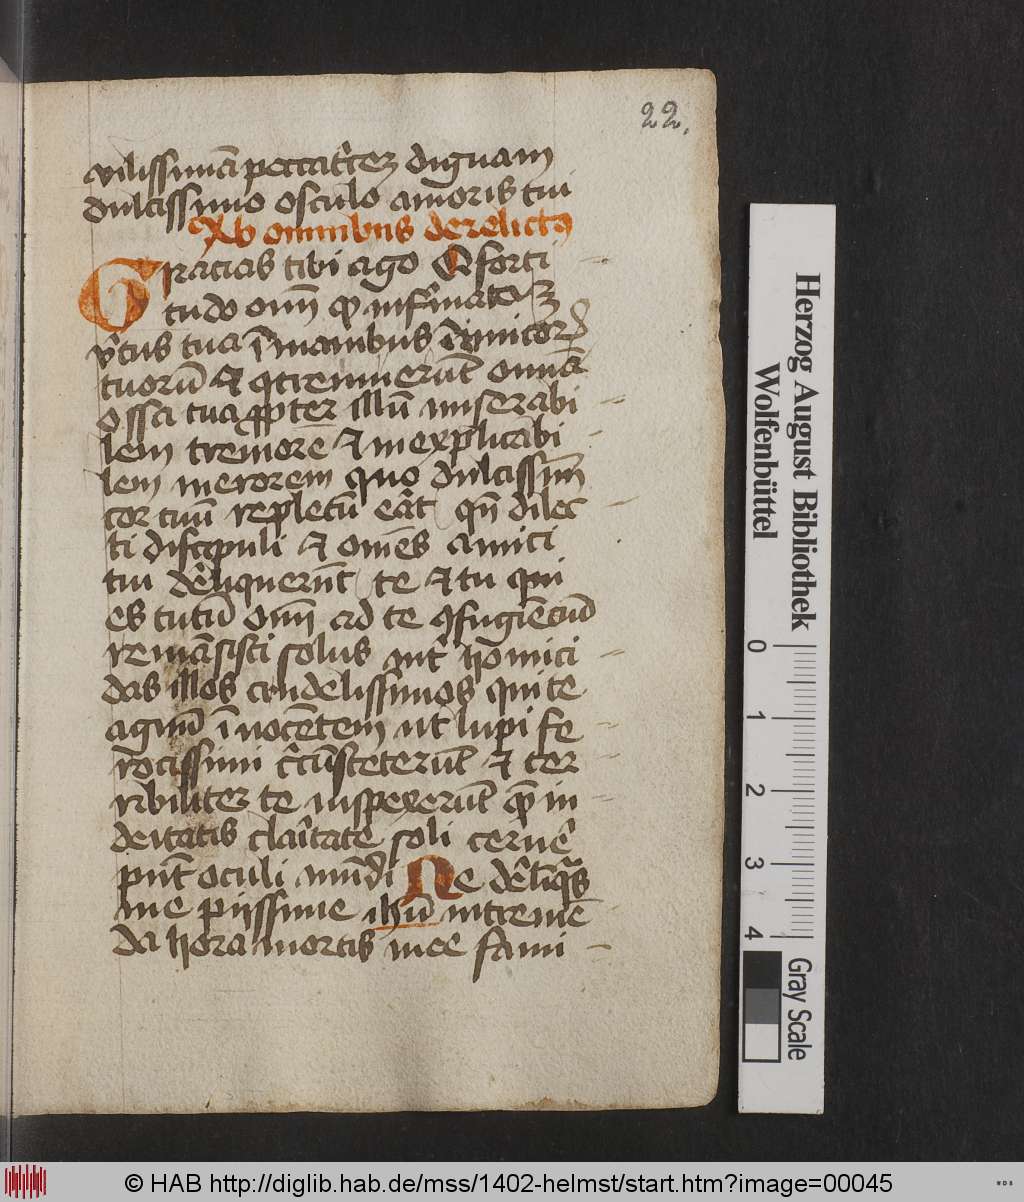 22.
vilissimā peccat͛cē dignam
dulcissimo osculo amoris tui
Ab omnibus derelictꝰ
Gracias tibi ago O forti
tudo om̄ꝫ infirmatoꝝ
tus tua ī manibus īimicoꝝ
tuorū ⁊ ꝯtremuerūt omīa
ossa tua ꝓpter illū miserabi
lem tremorē ⁊ inexplicabi
lem merorem quo dulcissimū
cor tuū repletū erāt qn̄ dilec
ti discipuli ⁊ om̄es amici
tui de͛liquerūnt te ⁊ tu qui
es tutū om̄ ad te ꝯfugiēciū
remāsisti solus int͛ homici
das illos crudelissimos qui te
agnū īnocētem ut lupi fe
rocissimi c͛cūsteterūt ⁊ ter
ribiliter te inspexerūt qē in
deitatis clar͛itate soli cerne͛
pn̄t oculi mūdi Ne de͛liqꝫs
me piissime ihū in treme͛
da hora mortis mee fami
Herzog August Bibliothek
Wolfenbüttel
0 1 2 3 4
Gray Scale
© HAB http://diglib.hab.de/mss/1402-helmst/start.htm?image=00045